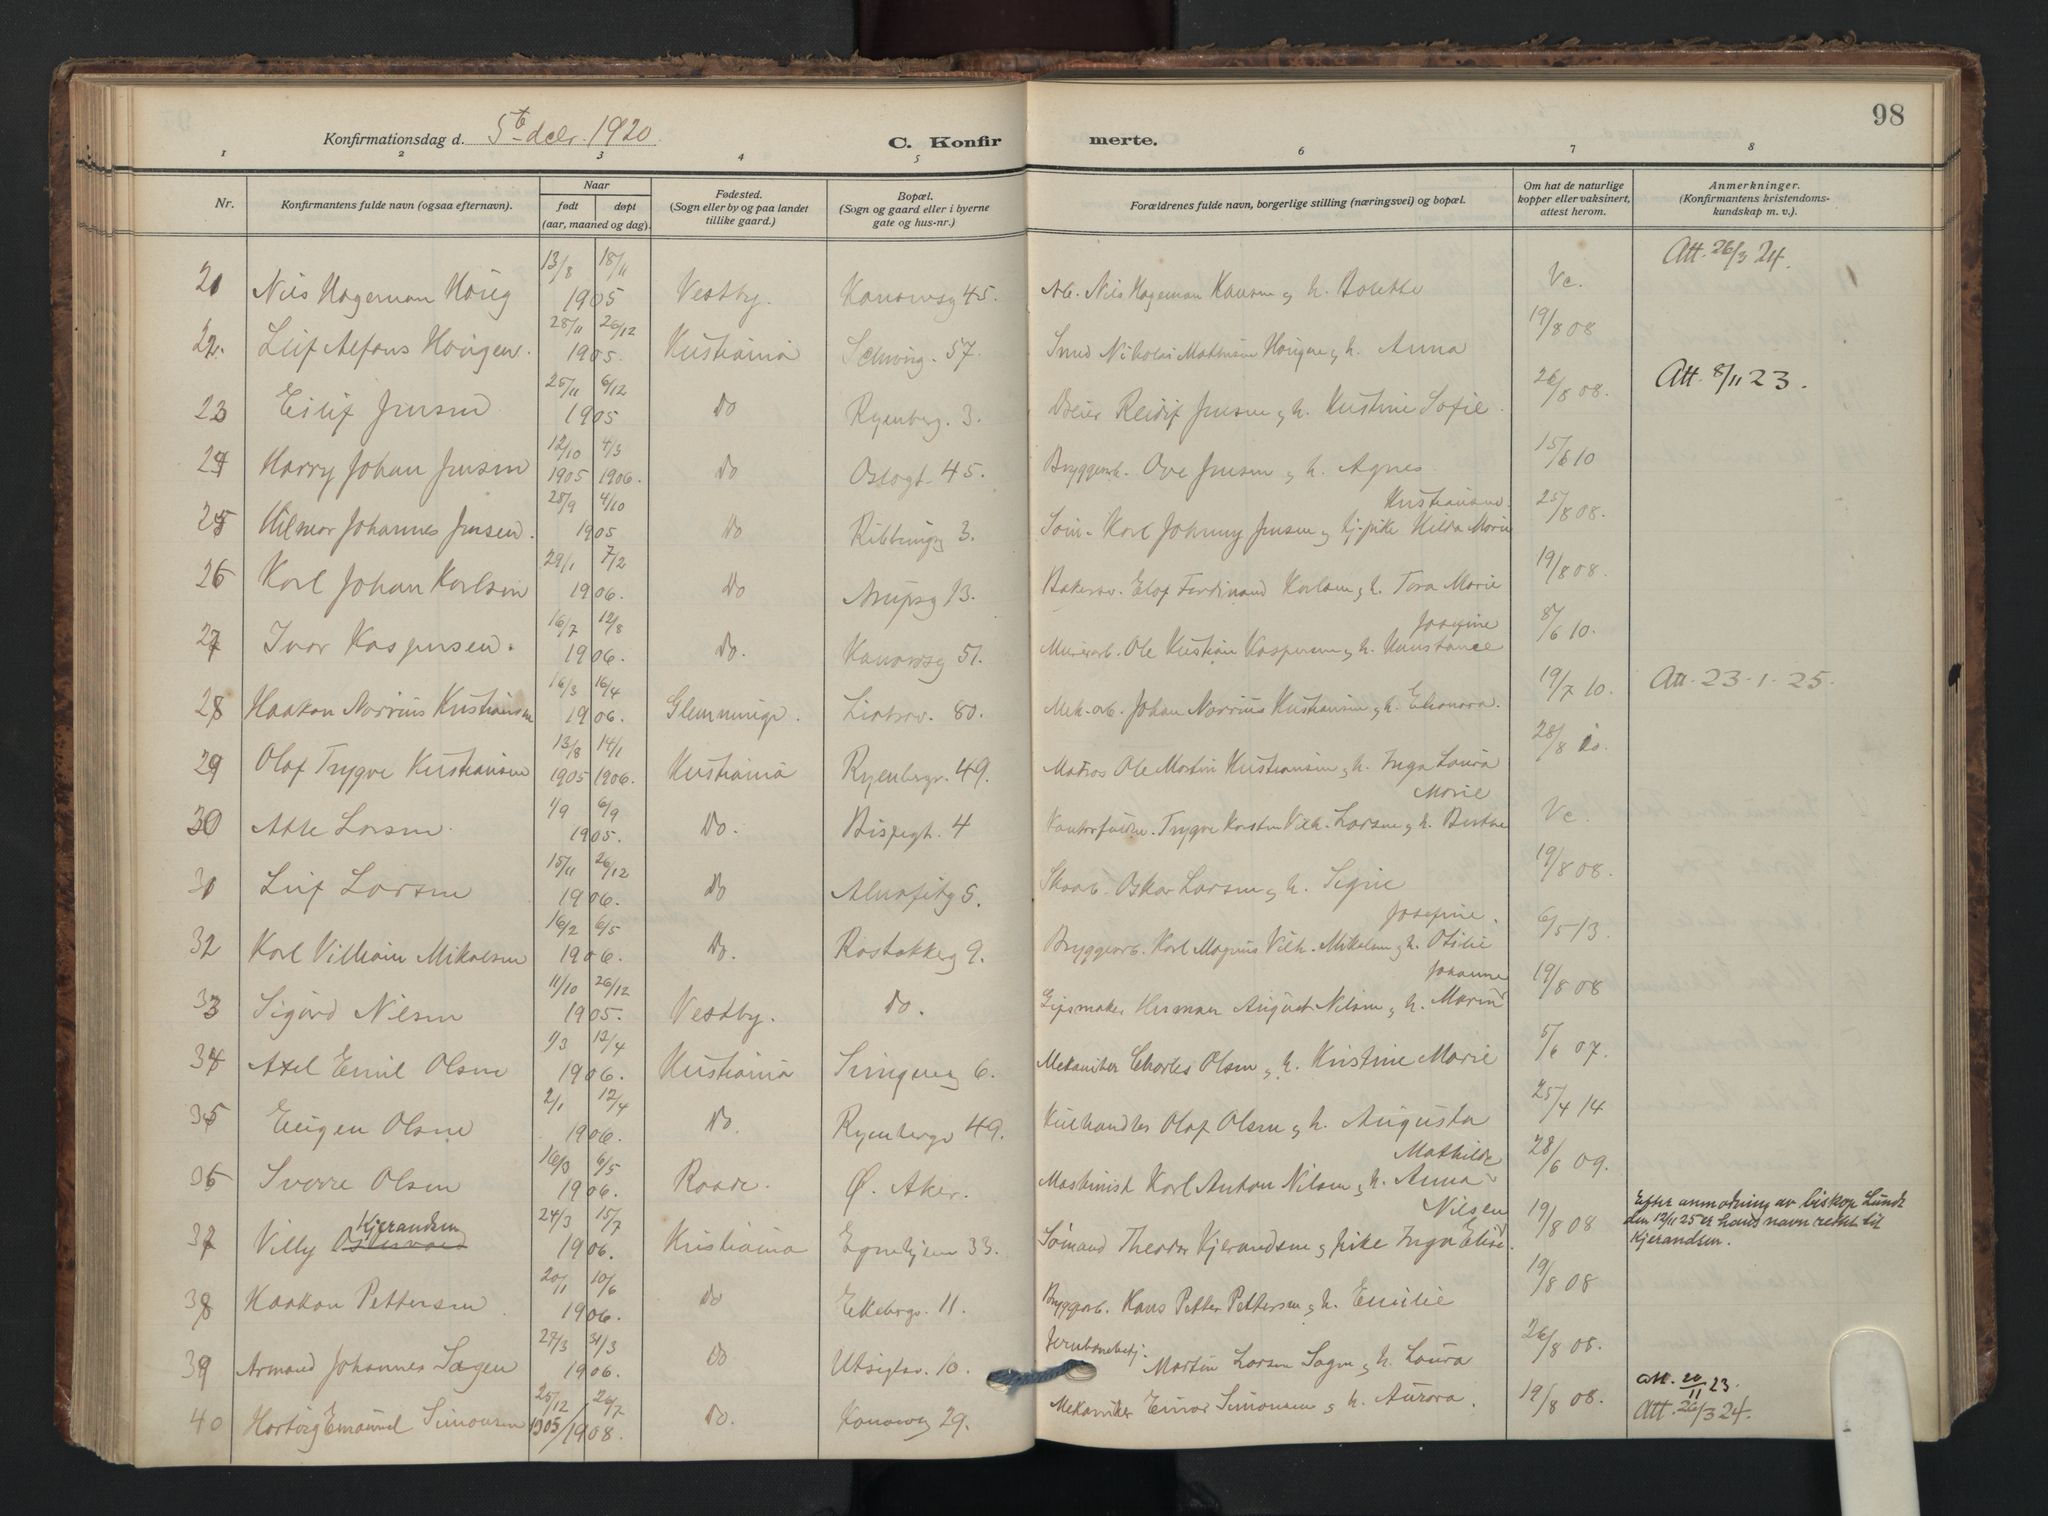 98
Konfirmationsdag d. 5te decbr. 1920
C. Konfirmerte.
1 2 3 4 5 6 7 8
Nr. Konfirmantens fulde navn (ogsaa efternavn). Naar født døpt (aar, maaned og dag). Fødested. (Sogn eller by og paa landet tillike gaard.) Bopæl. (Sogn og gaard eller i byerne gate og hus-nr.) Forældrenes fulde navn, borgerlige stilling (næringsvei) og bopæl. Om hat de naturlige kopper eller vaksinert, attest herom. Anmerkninger. (Konfirmantens kristendoms-kundskap m. v.).
21 Nils Hageman Høug 13/8 18/11 1905 Vestby. Kanowsg 45. Arb. Nils Hageman Hansen og h. Bolette Vc. Att. 26/3 24.
22. Leif Alfons Haugen. 28/11 26/12 1905. Kristiania 57. Smed Nikolai Haugen og h. Anna 19/8 08
23 Eilif Jensen 25/11 6/12 1905 Do Ryenberg. 3. Reidif Jensen og h. Kristine Sofie. 26/8 08. Att. 8/11 23.
24 Harry Johan Jensen 12/10 4/3 1905 1906. Do Oslogt. 45. Bryggearb. Ove Jensen og h. Agnes 15/6 10
25 Hilmar Johannes Jensen. 28/9 4/10 1905 Do Ribbungg 3. Karl Johnny Jensen og pike Hilda Marie Kristiansen 25/8 08.
26 Karl Johan Karlsen 29/1 7/2 1906. Do Arupsg 13. Elof Ferdinand Karlsen og h. Tora Marie 19/8 08.
27 Ivar Kaspersen. 16/7 12/8 1906. Do. Kanowsg 51. Murerarb. Ole Kristian Kaspersen og h. Konstance Josefine 8/6 10.
28 Haakon Norvius Kristiansen 16/3 16/4 1906. Glemminge. Liabrov. 80. Mek. arb. Johan Norvius Kristiansen og h. Elenora. 19/7 10. Att. 23-1-25.
29 Olaf Trygve Kristiansen 13/8 14/1 1905 1906. Kristiania Ryenbergv. 49. Matros Ole Martin Kristiansen og h. Inga Laura 28/8 10.
30 Atle Larsen. 1/9 6/9 1905. Do. Bispegt. 4 Trygve Karsten Vilh. Larsen og h. Marie Vc.
31 Leif Larsen 15/11 26/12 1906. Do 5. Oskar Larsen og h. Signe 19/8 08.
32 Karl Villiam Mikalsen 16/2 6/5 1906. Do. Rostokkg 9. Bryggearb. Karl Magnus Vilh. Mikalsen og h. Otilie Josefine. 6/5-13.
33 Sigurd Nilsen 11/10 26/12 1905. Vestby. Do. Gipsmaker Herman August Nilsen og h. Marin Johanne 19/8 08
34 Axel Emil Olsen 1/3 12/4 1906. Kristiania 6. Mekaniker Charles Olsen og h. Kristine Marie 5/6 07.
35 Eugen Olsen 2/1 12/4 1906. Do. Ryenbergv 49. Kulhandler Olaf Olsen og h. Augusta 25/4 14
36 Sverre Olsen 16/3 6/5 1906. Raade. Ø. Aker. Maskinist Karl Anton Nilsen og h. Anna Mathilde 28/6 09.
37 Villy Kjerandsen 24/3 15/7 1906. Kristiania Egnehjem 33. Sømand Theodor Kjerandsen og pike Inga Elise Nilsen. 19/8 08 Efter anmodning av biskop Lunde den 12/11 25 er hans navn rettet til Kjerandsen.
38 Haakon Pettersen 20/1 10/6 1906. Do Ekebergv. 11. Bryggearb. Hans Petter Pettersen og h. Emilie 19/8 08
39 Armand Johannes Sagen 27/3 31/3 1906. Do Utsigtsv. 10. Jernbanebetj. Martin Larsen Sagen og h. Laura 26/8 08.
40 Hartvig Emanuel Simonsen 25/12 26/7 1905/1908. Do. Kanowsg 29. Mekaniker Einar Simonsen og h. Aurora. 19/8 08. Att. 20/11 23. Att. 26/3 24.